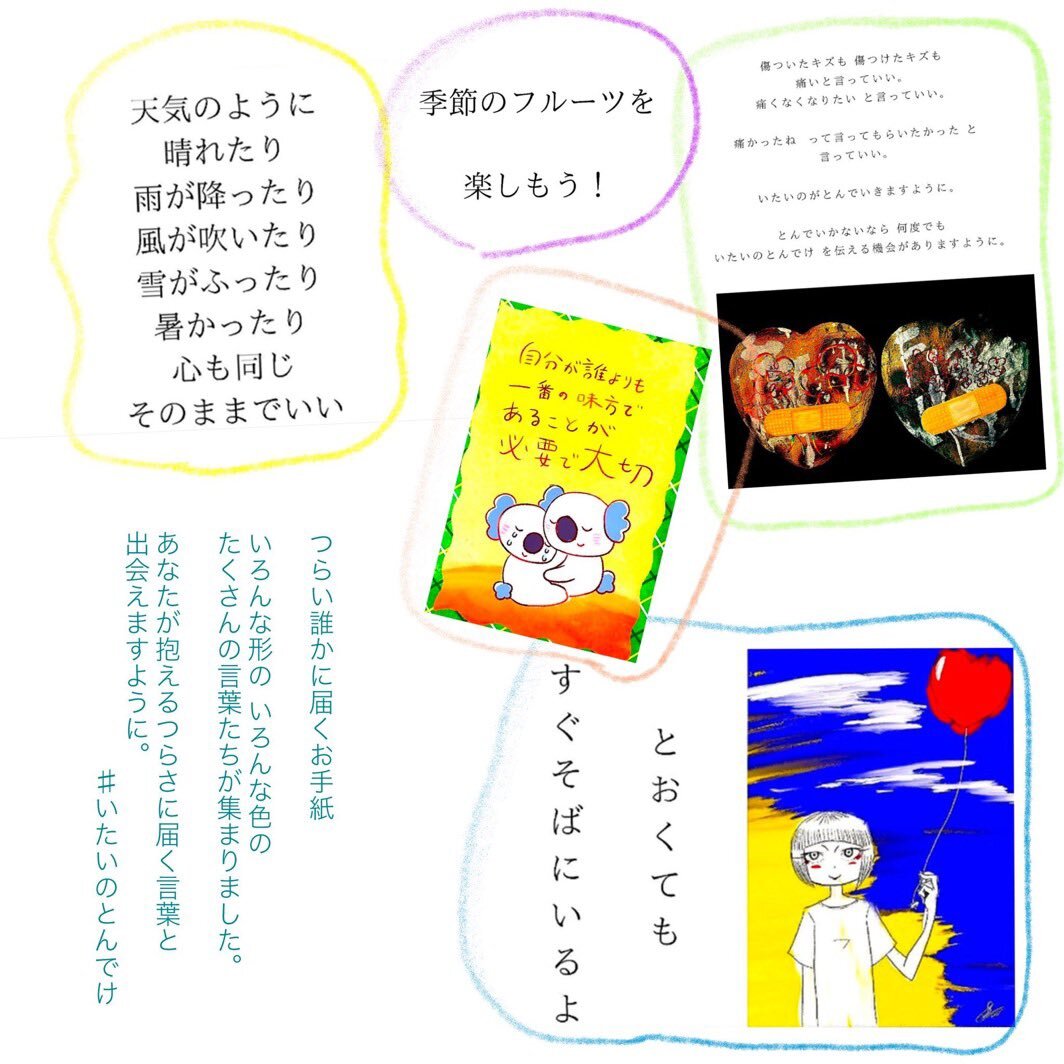 天気のように
晴れたり
雨が降ったり
風が吹いたり
雪がふったり
暑かったり
心も同じ
そのままでいい
季節のフルーツを
楽しもう！
傷ついたキズも 傷つけたキズも
痛いと言っていい。
痛くなくなりたい と言っていい。
痛かったね　って言ってもらいたかった と
言っていい。
いたいのがとんでいきますように。
とんでいかないなら 何度でも
いたいのとんでけ を伝える機会がありますように。
自分が誰よりも
一番の味方で
あることが
必要で大切
つらい誰かに届くお手紙
いろんな形の いろんな色の
たくさんの言葉たちが集まりました。
あなたが抱えるつらさに届く言葉と
出会えますように。
＃いたいのとんでけ
とおくても
すぐそばにいるよ